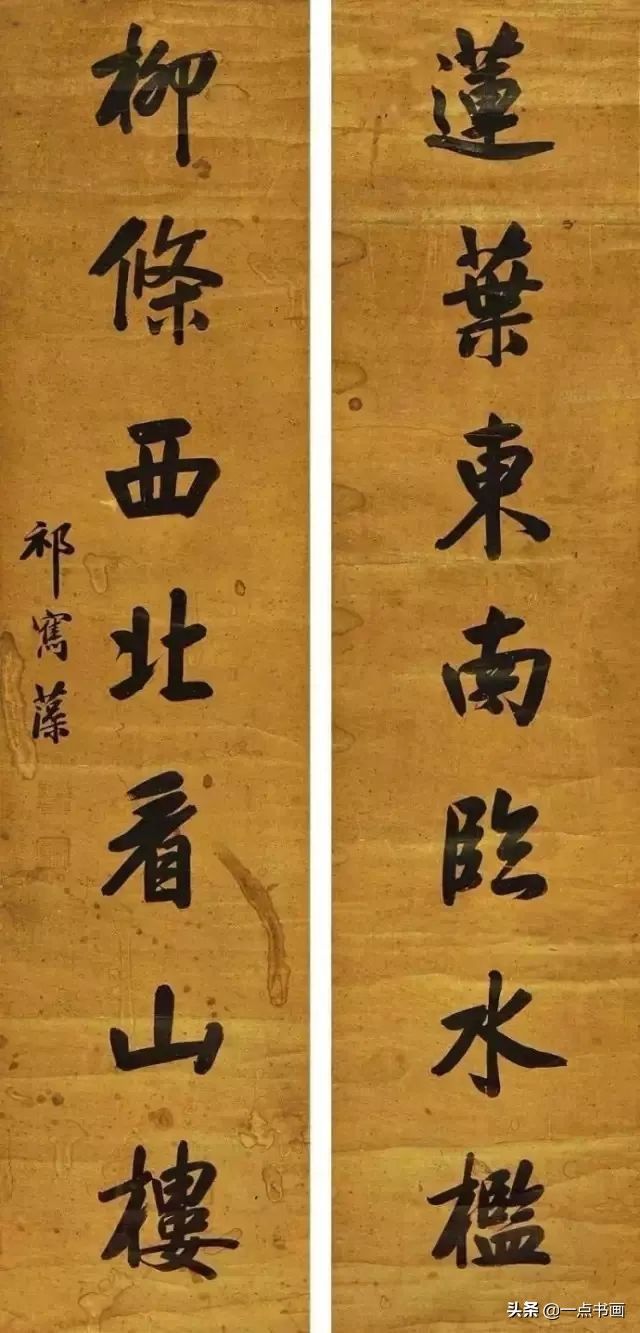 蓮葉東南臨水檻
柳條西北看山樓
祁寯藻
头条 @一点书画